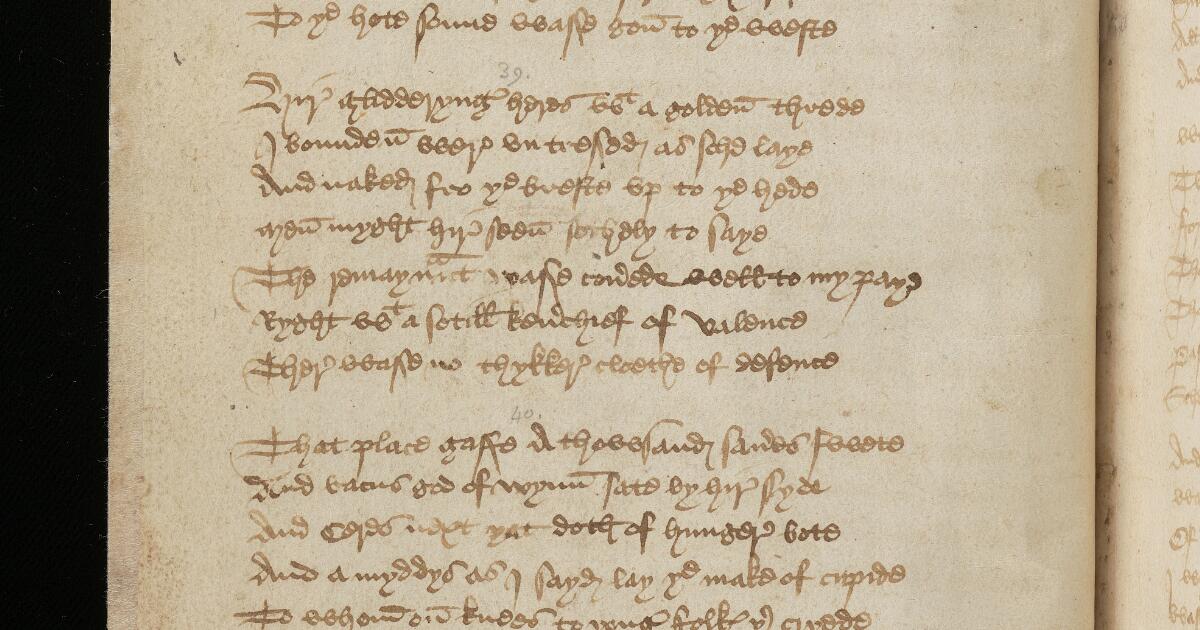 To yͤ hote sonne wasse gon̄ to yͤ weste
39.
Hir glidderyng heres wᵗ a golden̄ threde
I bounden̄ were vntressed as sche laye
And naked fro yͤ breste vp to yͤ hede
men̄ myght hir seen̄ sothely to saye
The remaynēt wasse cou'ede well to my paye
Ryght wᵗ a sotill ken'chief of valence
Ther wasse no thykker clothe of defence
40.
That place gaffe A thowsand sauoes swete
And bacus god of wynn̄ sate by hir syde
And Ceres next yat doth of hunger bote
And a myddys as I sayd lay yͤ make of cupide
To whom̄ on̄ knees to yong folk cryede